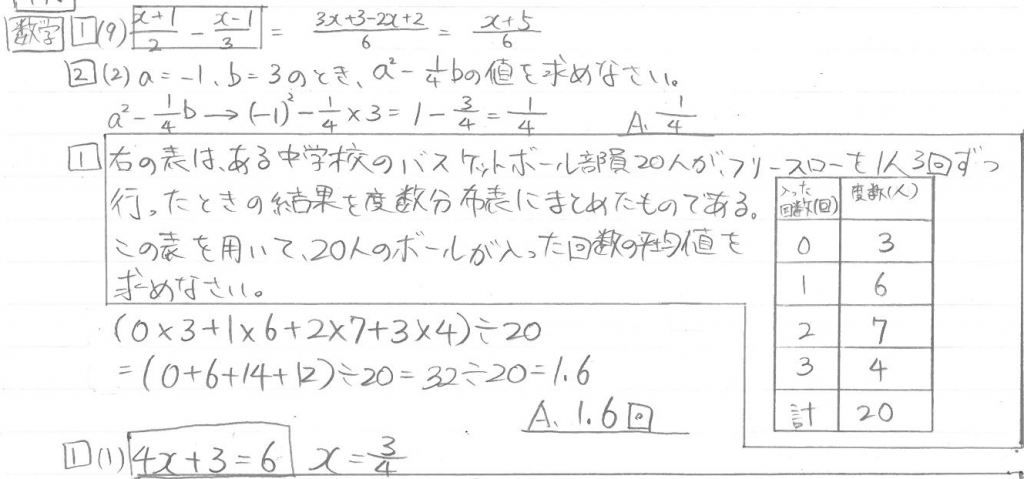 数学 1 (9) x+1/2 - x-1/3 = 3x+3-2x+2/6 = x+5/6
2 (2) a=-1、b=3のとき、a²-1/4bの値を求めなさい。
a²-1/4b→(-1)²-1/4×3=1-3/4=1/4 A. 1/4
1 右の表は、ある中学校のバスケットボール部員20人が、フリースローを1人3回ずつ
行ったときの結果を度数分布表にまとめたものである。
この表を用いて、20人のボールが入った回数の平均値を
求めなさい。
入った回数(回) 度数(人)
0 3
1 6
2 7
3 4
計 20
(0×3+1×6+2×7+3×4)÷20
=(0+6+14+12)÷20=32÷20=1.6
A. 1.6回
1 (1) 4x+3=6 x=3/4